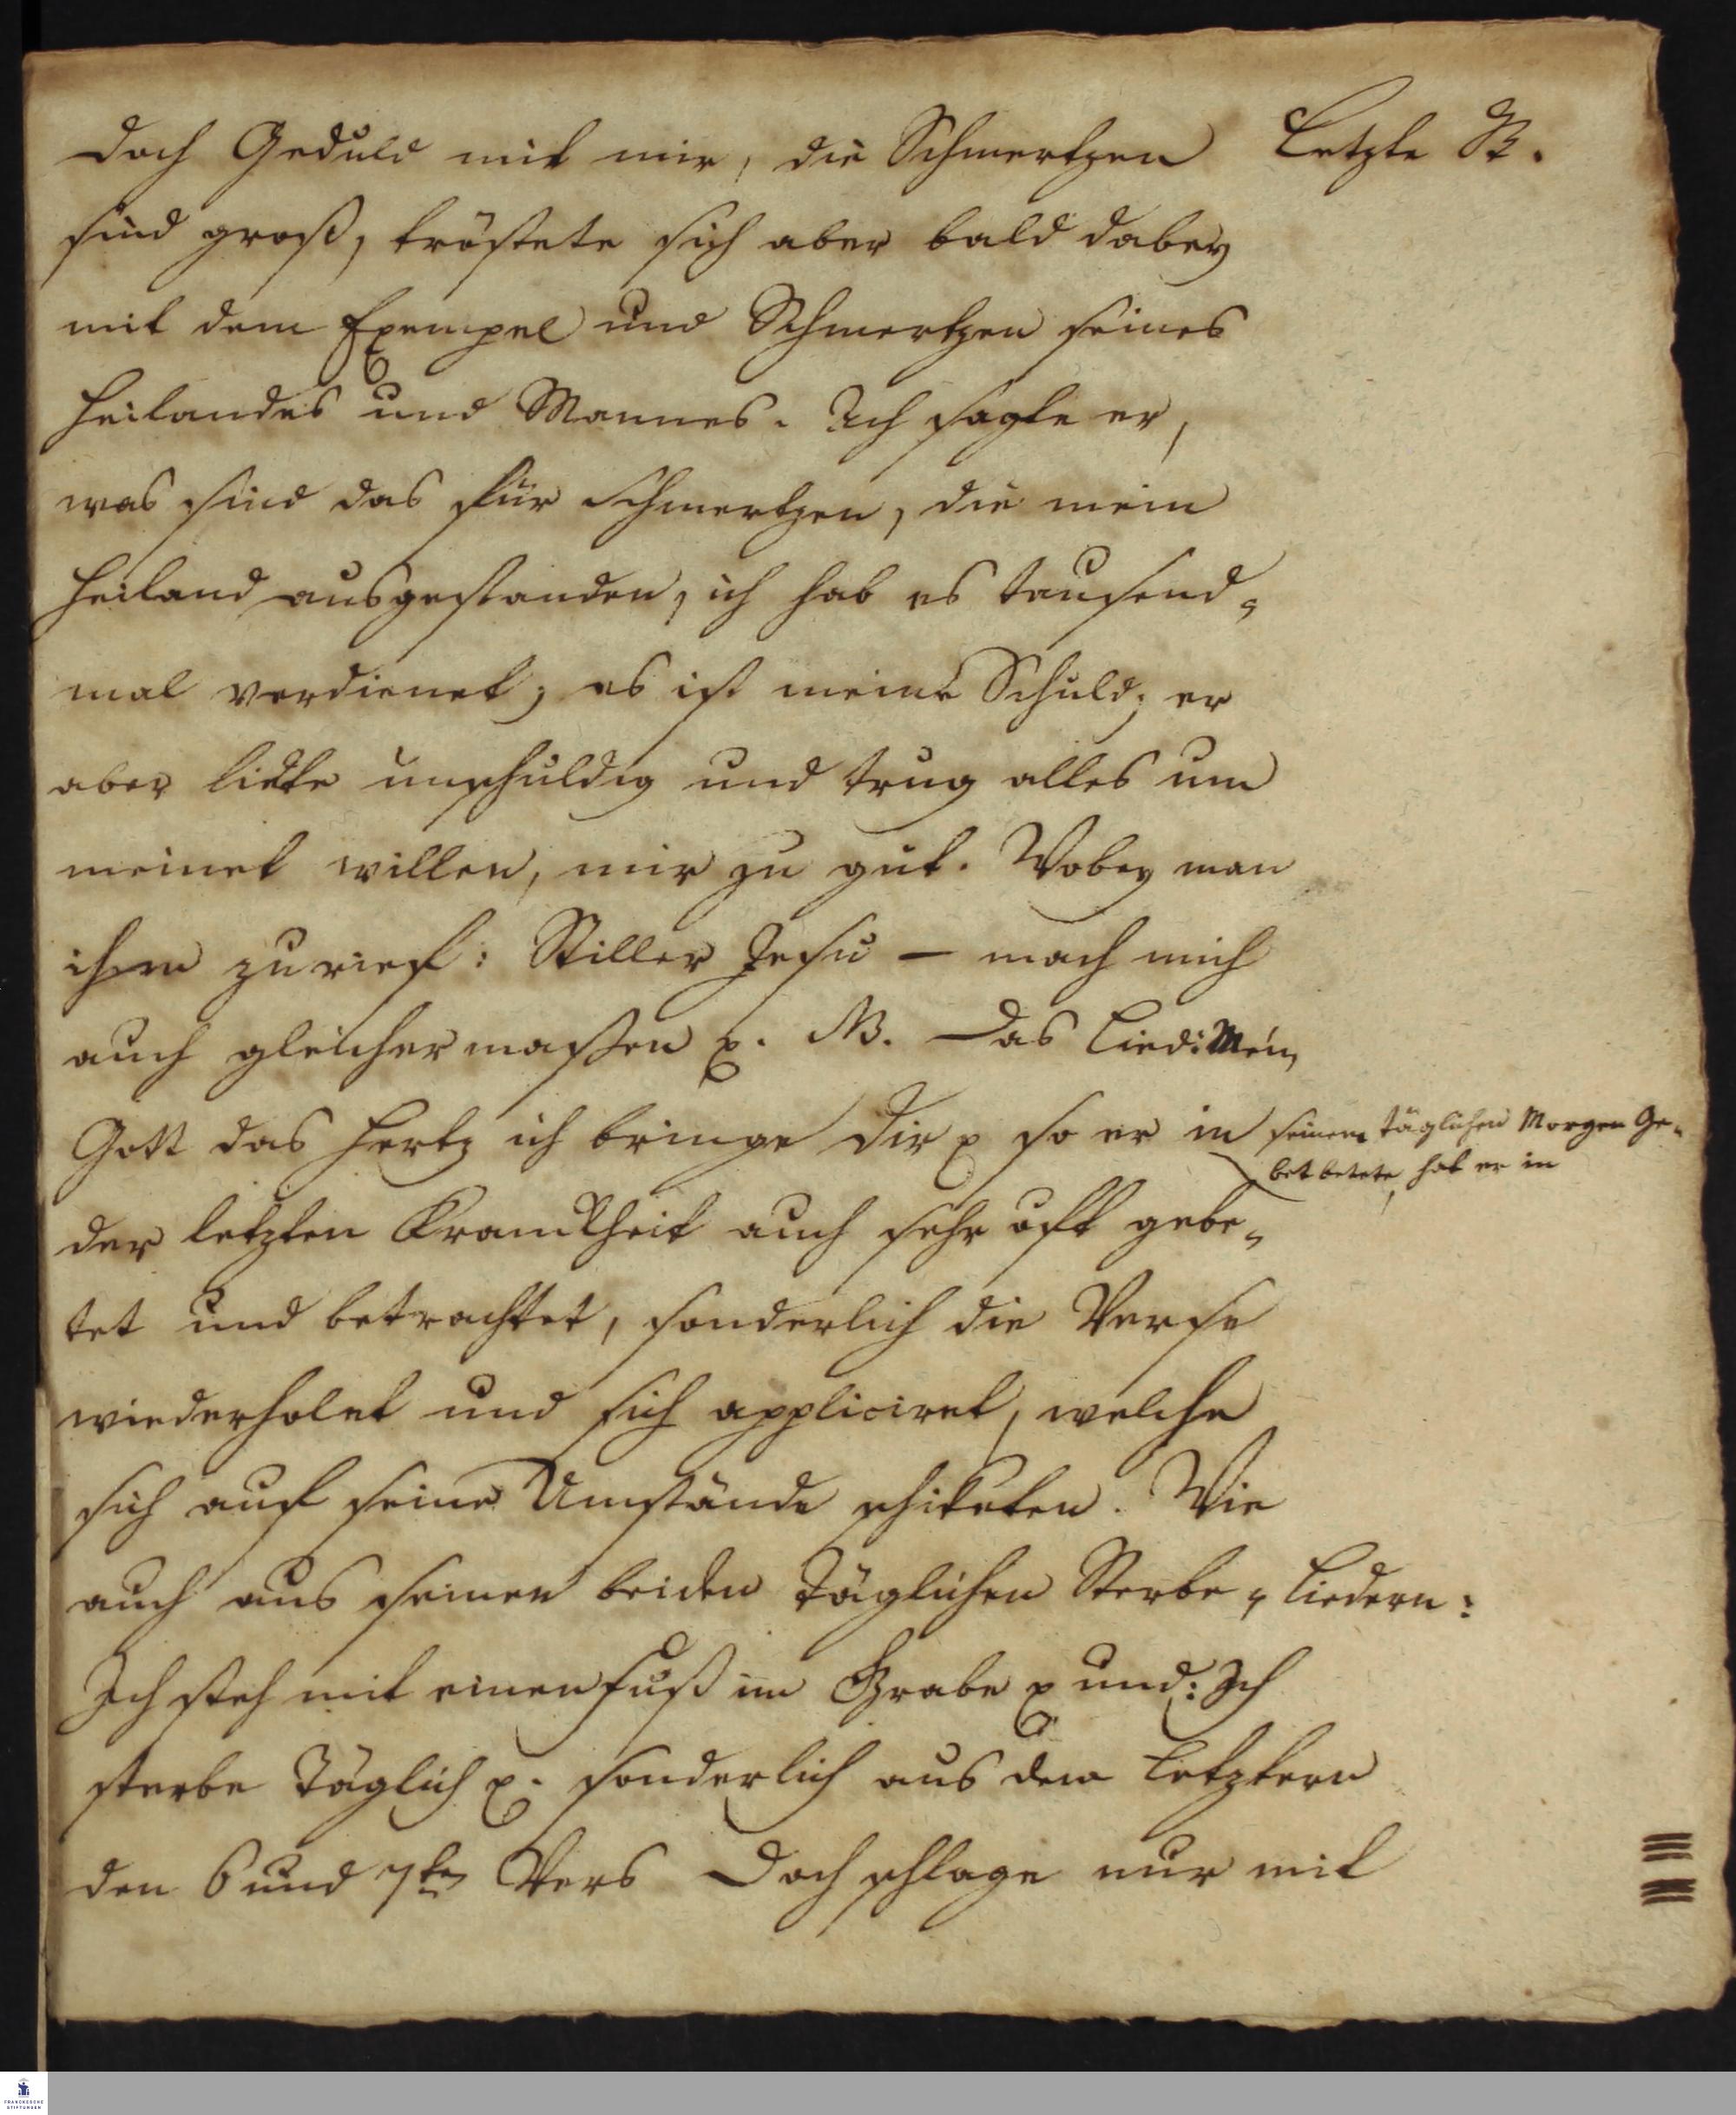 doch Geduld mit mir, die Schmertzen
Letzte St.
sind groß, tröstete sich aber bald dabey
mit dem Exempel und Schmertzen seines
Heilandes und Mannes. Ach sagte er,
was sind das für Schmertzen, die mein
Heiland ausgestanden, ich hab es tausend-
mal verdienet; es ist meine Schuld; er
aber liedte unschuldig und trug alles um
meinet willen, mir zu gut. Wobey man
ihm zurief: Stiller Jesu – mach mich
auch gleichermaßen p. NB. Das Lied: Mein
Gott das Hertz ich bringe dir p so er in
seinem täglichen Morgen Ge-
bet betete, hat er in
der letzten Kranckheit auch sehr oft gebe-
tet und betrachtet, sonderlich die Verse
wiederholet und sich appliciret, welche
sich auf seine Umstände schikten. Wie
auch aus seinen beiden täglichen Sterbe-Liedern:
Ich steh mit einen Fuß im Grabe p und: Ich
sterbe täglich p. sonderlich aus dem Letztern
den 6 und 7ten Vers Doch schlage nur mit
FRANCKESCHE
STIFTUNGEN